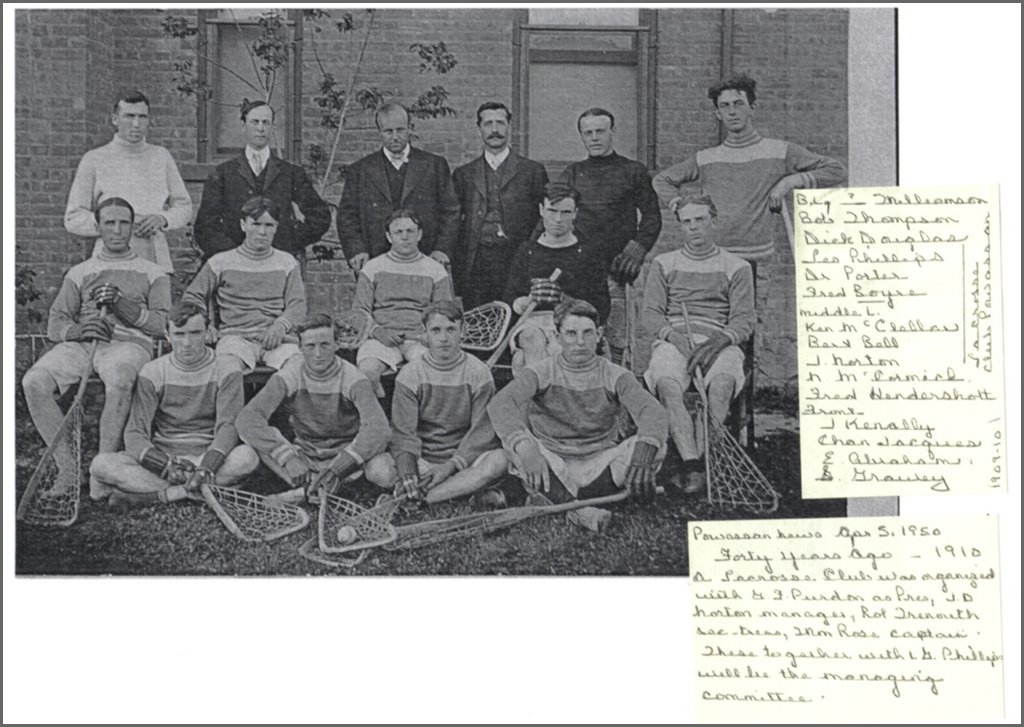 Big ? Williamson
Bob Thompson
Dick Douglas
Leo Phillips
Dr Porter
Fred Boyre
middle L.
Ken McClellan
Bart Bell
J Norton
N McCormick.
Fred Hendershott
Front
J Kenally
Chan Jacques
Wm. Abraham.
D. Grawey
Lacrosse
Club Powassan
1909-10
Powassan News Apr 5, 1950
Forty Years Ago - 1910
A Lacrosse Club was organized
with G F. Purdon as Pres, J.D
Norton manager, Rot Trenouth
sec-treas, Thom Rose captain.
These together with L. G. Phillips
will be the managing
committee.